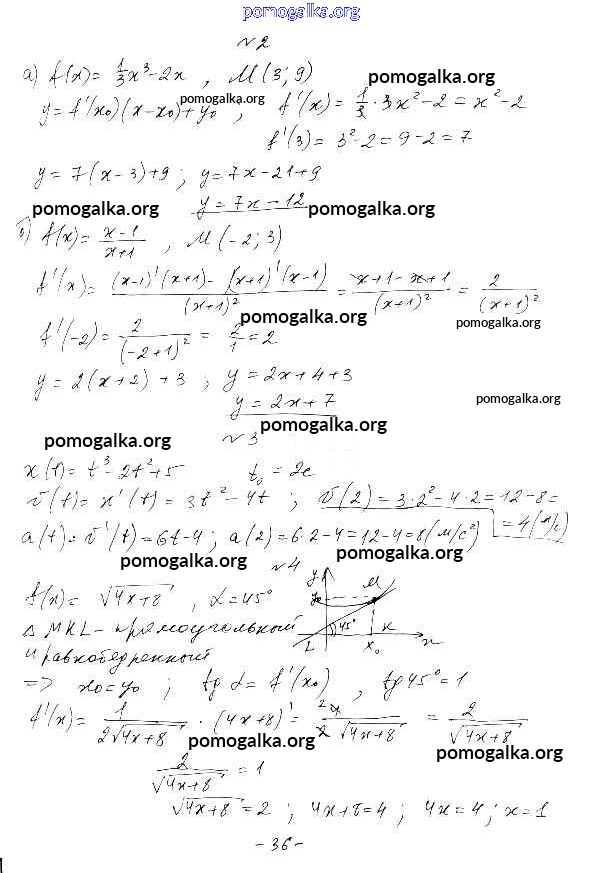 pomogalka.org
№2
а) f(x) = 1/3 x³ - 2x , M(3; 9)
pomogalka.org
y = f'(x₀)(x - x₀) + y₀ ; f'(x) = 1/3 · 3x² - 2 = x² - 2
pomogalka.org
f'(3) = 3² - 2 = 9 - 2 = 7
y = 7(x - 3) + 9 ; y = 7x - 21 + 9
pomogalka.org y = 7x - 12 pomogalka.org
б) f(x) = (x - 1)/(x + 1) , M(-2; 3)
f'(x) = ((x-1)'(x+1) - (x+1)'(x-1))/(x+1)² = (x+1-x+1)/(x+1)² = 2/(x+1)²
pomogalka.org pomogalka.org
f'(-2) = 2/(-2+1)² = 2/1 = 2
y = 2(x+2) + 3 ; y = 2x + 4 + 3
pomogalka.org
y = 2x + 7
pomogalka.org №3 pomogalka.org
x(t) = t³ - 2t² + 5 t₀ = 2с
v(t) = x'(t) = 3t² - 4t ; v(2) = 3·2² - 4·2 = 12 - 8 =
= 4 (м/с)
a(t) = v'(t) = 6t - 4 ; a(2) = 6·2 - 4 = 12 - 4 = 8 (м/с²)
pomogalka.org pomogalka.org
№4
f(x) = √(4x+8) , α = 45°
y M
y₀
45° K
L x₀ x
Δ MKL - прямоугольный
и равнобедренный
=> x₀ = y₀ ; tg α = f'(x₀) , tg 45° = 1
f'(x) = 1/(2√(4x+8)) · (4x+8)' = 4/(2√(4x+8)) = 2/√(4x+8)
pomogalka.org pomogalka.org
2/√(4x+8) = 1
√(4x+8) = 2 ; 4x+8 = 4 ; 4x = 4 ; x = 1
- 36 -